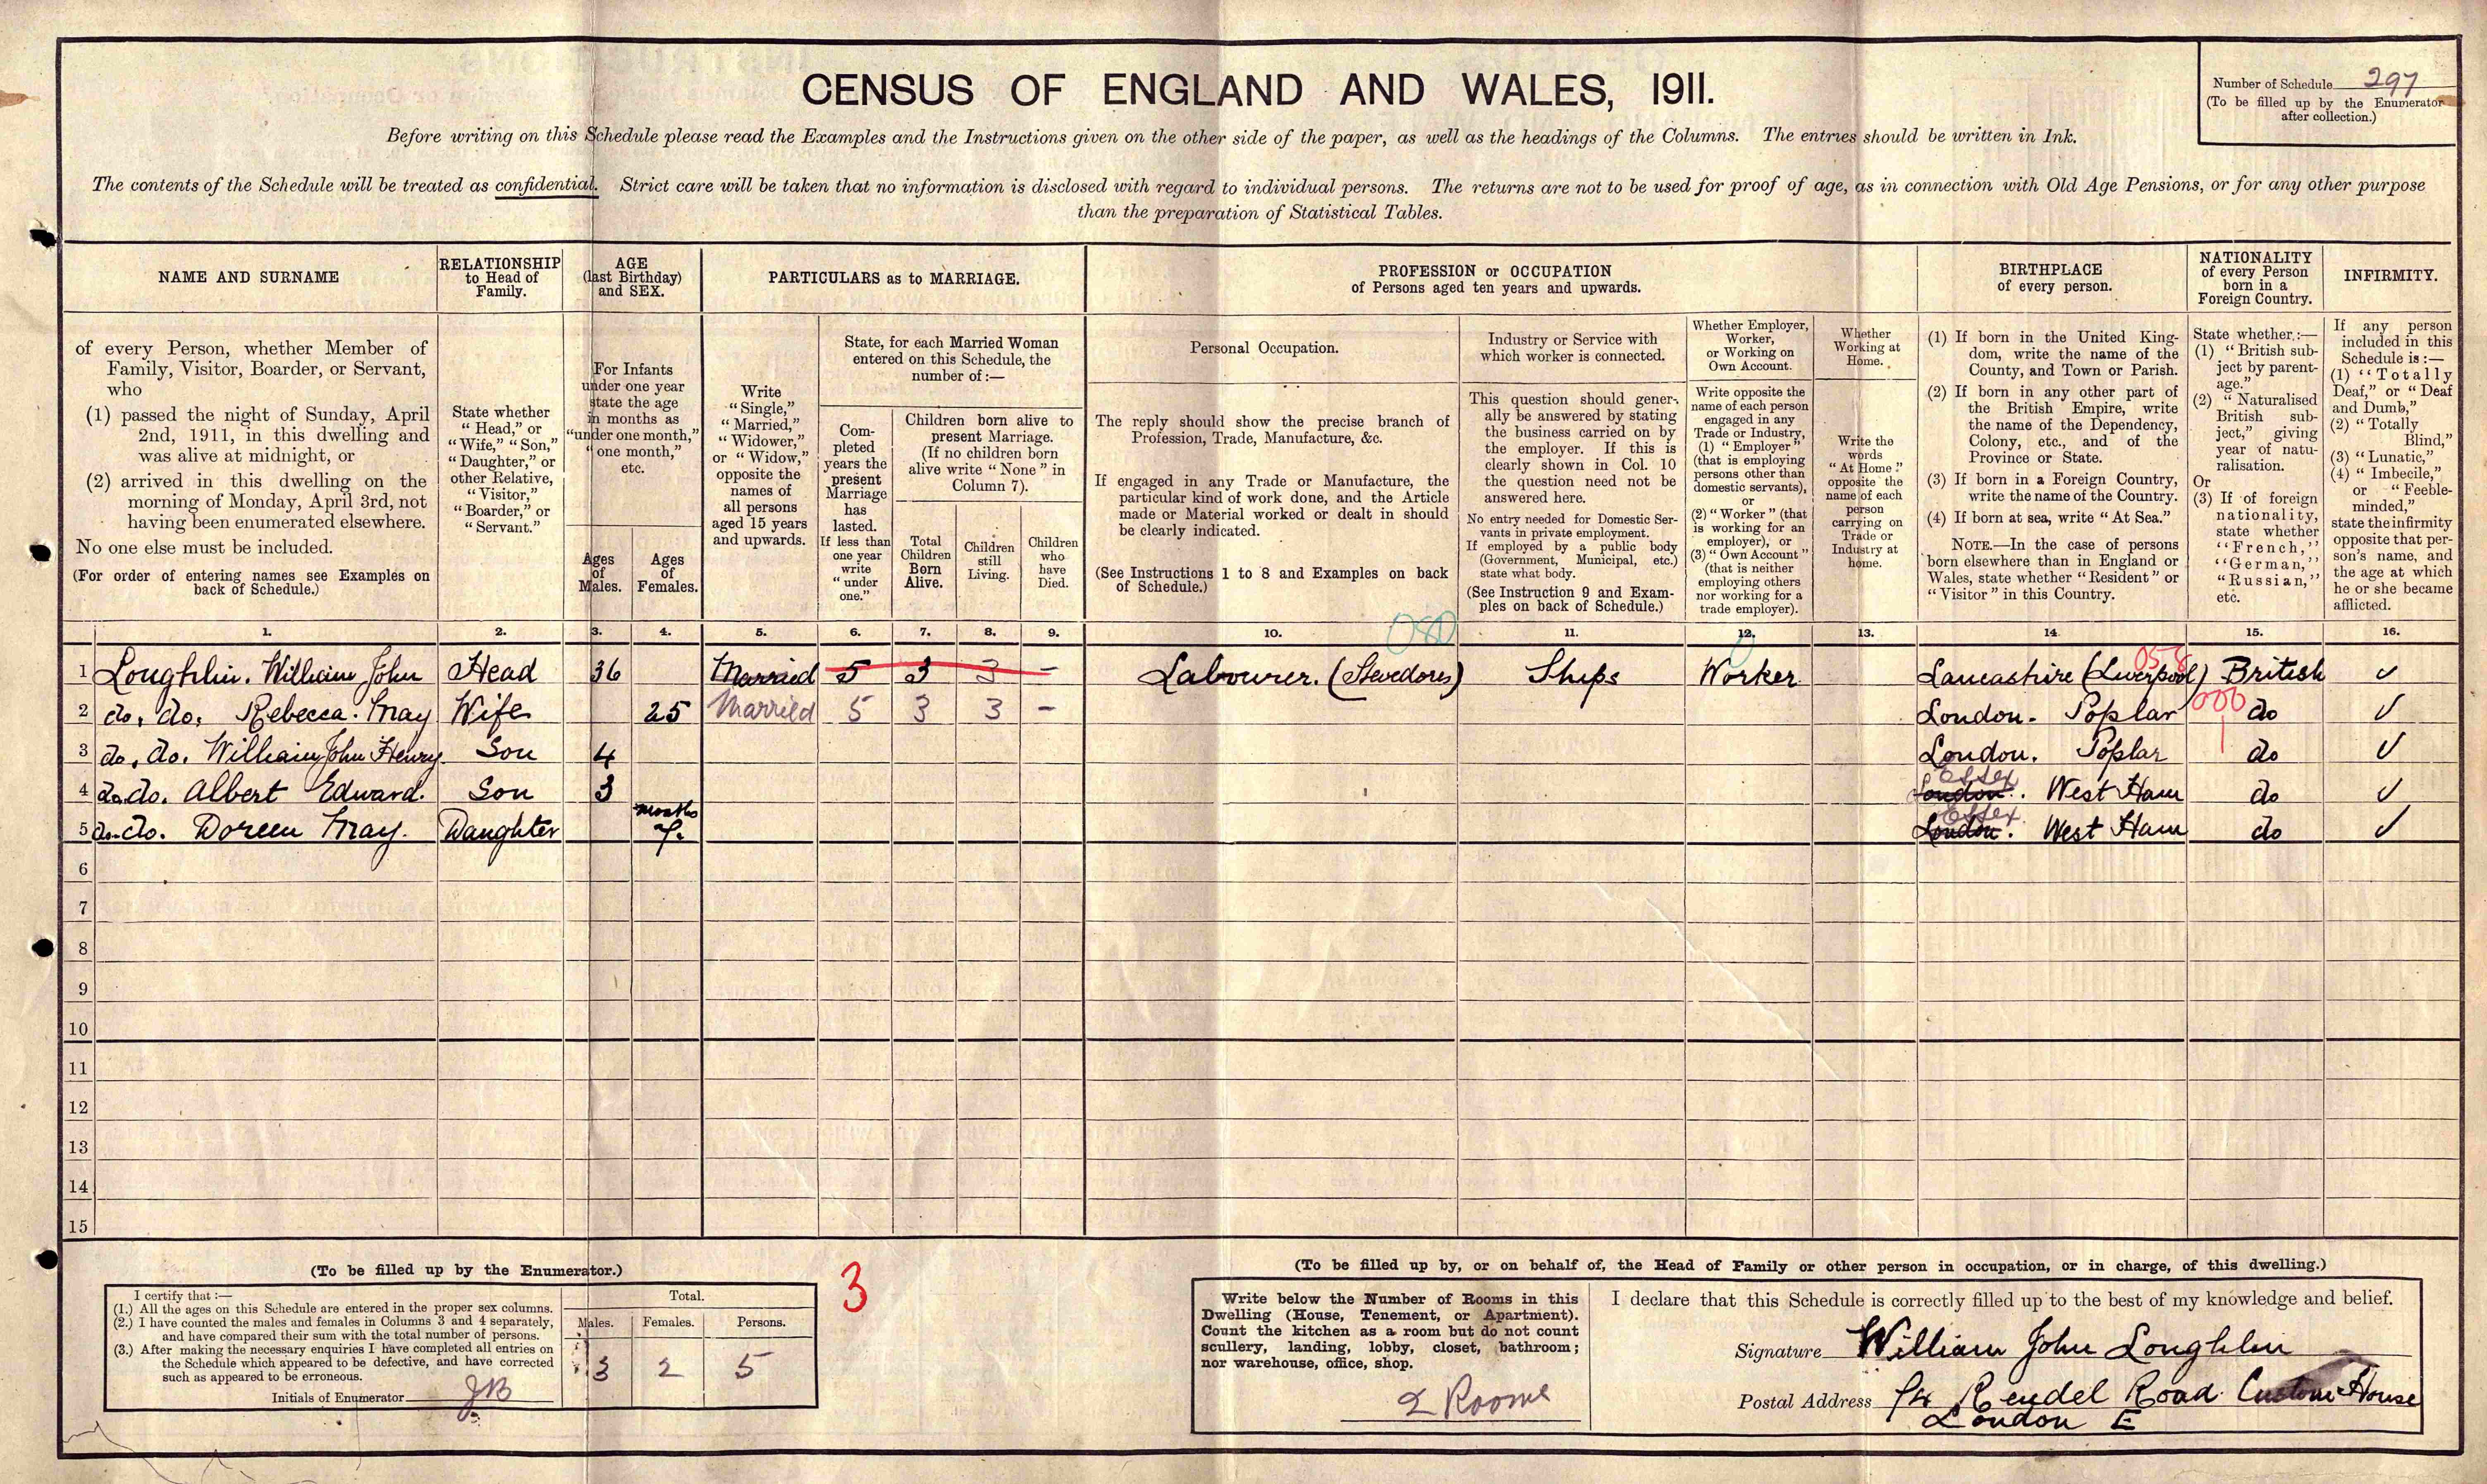 CENSUS OF ENGLAND AND WALES, 1911.
Number of Schedule 297
(To be filled up by the Enumerator
after collection.)
Before writing on this Schedule please read the Examples and the Instructions given on the other side of the paper, as well as the headings of the Columns. The entries should be written in Ink.
The contents of the Schedule will be treated as confidential. Strict care will be taken that no information is disclosed with regard to individual persons. The returns are not to be used for proof of age, as in connection with Old Age Pensions, or for any other purpose
than the preparation of Statistical Tables.
NAME AND SURNAME
of every Person, whether Member of
Family, Visitor, Boarder, or Servant,
who
(1) passed the night of Sunday, April
2nd, 1911, in this dwelling and
was alive at midnight, or
(2) arrived in this dwelling on the
morning of Monday, April 3rd, not
having been enumerated elsewhere.
No one else must be included.
(For order of entering names see Examples on
back of Schedule.)
RELATIONSHIP
to Head of
Family.
State whether
"Head," or
"Wife," "Son,"
"Daughter," or
other Relative,
"Visitor,"
"Boarder," or
"Servant."
AGE
(last Birthday)
and SEX.
For Infants
under one year
state the age
in months as
"under one month,"
"one month,"
etc.
Ages
of
Males.
Ages
of
Females.
PARTICULARS as to MARRIAGE.
Write
"Single,"
"Married,"
"Widower,"
or "Widow,"
opposite the
names of
all persons
aged 15 years
and upwards.
State, for each Married Woman
entered on this Schedule, the
number of:—
Com-
pleted
years the
present
Marriage
has
lasted.
If less than
one year
write
"under
one."
Children born alive to
present Marriage.
(If no children born
alive write "None" in
Column 7).
Total
Children
Born
Alive.
Children
still
Living.
Children
who
have
Died.
PROFESSION or OCCUPATION
of Persons aged ten years and upwards.
Personal Occupation.
The reply should show the precise branch of
Profession, Trade, Manufacture, &c.
If engaged in any Trade or Manufacture, the
particular kind of work done, and the Article
made or Material worked or dealt in should
be clearly indicated.
(See Instructions 1 to 8 and Examples on back
of Schedule.)
Industry or Service with
which worker is connected.
This question should gener-
ally be answered by stating
the business carried on by
the employer. If this is
clearly shown in Col. 10
the question need not be
answered here.
No entry needed for Domestic Ser-
vants in private employment.
If employed by a public body
(Government, Municipal, etc.)
state what body.
(See Instruction 9 and Exam-
ples on back of Schedule.)
Whether Employer,
Worker,
or Working on
Own Account.
Write opposite the
name of each person
engaged in any
Trade or Industry,
(1) "Employer"
(that is employing
persons other than
domestic servants),
or
(2) "Worker" (that
is working for an
employer), or
(3) "Own Account"
(that is neither
employing others
nor working for a
trade employer).
Whether
Working at
Home.
Write the
words
"At Home"
opposite the
name of each
person
carrying on
Trade or
Industry at
home.
BIRTHPLACE
of every person.
(1) If born in the United King-
dom, write the name of the
County, and Town or Parish.
(2) If born in any other part of
the British Empire, write
the name of the Dependency,
Colony, etc., and of the
Province or State.
(3) If born in a Foreign Country,
write the name of the Country.
(4) If born at sea, write "At Sea."
NOTE.—In the case of persons
born elsewhere than in England or
Wales, state whether "Resident" or
"Visitor" in this Country.
NATIONALITY
of every Person
born in a
Foreign Country.
State whether:—
(1) "British sub-
ject by parent-
age."
(2) "Naturalised
British sub-
ject," giving
year of natu-
ralisation.
Or
(3) If of foreign
nationality,
state whether
"French,"
"German,"
"Russian,"
etc.
INFIRMITY.
If any person
included in this
Schedule is:—
(1) "Totally
Deaf," or "Deaf
and Dumb,"
(2) "Totally
Blind,"
(3) "Lunatic,"
(4) "Imbecile,"
or "Feeble-
minded,"
state the infirmity
opposite that per-
son's name, and
the age at which
he or she became
afflicted.
1. 2. 3. 4. 5. 6. 7. 8. 9. 10. 11. 12. 13. 14. 15. 16.
080
1 Loughlin. William John Head 36 Married 5 3 3 - Labourer. (Stevedores) Ships Worker Lancashire (Liverpool) 058 British
2 do. do. Rebecca. May Wife 25 Married 5 3 3 - London. Poplar 000 do
3 do. do. William John Henry Son 4 London. Poplar do
4 do. do. Albert Edward. Son 3 London. Essex West Ham do
5 do. do. Doreen May. Daughter months 7. London. Essex West Ham do
6
7
8
9
10
11
12
13
14
15
(To be filled up by the Enumerator.)
I certify that:—
(1.) All the ages on this Schedule are entered in the proper sex columns.
(2.) I have counted the males and females in Columns 3 and 4 separately,
and have compared their sum with the total number of persons.
(3.) After making the necessary enquiries I have completed all entries on
the Schedule which appeared to be defective, and have corrected
such as appeared to be erroneous.
Initials of Enumerator JB
Total.
Males. Females. Persons.
3 2 5
3
(To be filled up by, or on behalf of, the Head of Family or other person in occupation, or in charge, of this dwelling.)
Write below the Number of Rooms in this
Dwelling (House, Tenement, or Apartment).
Count the kitchen as a room but do not count
scullery, landing, lobby, closet, bathroom;
nor warehouse, office, shop.
2 Rooms
I declare that this Schedule is correctly filled up to the best of my knowledge and belief.
Signature William John Loughlin
Postal Address Rendel Road Custom House
London E